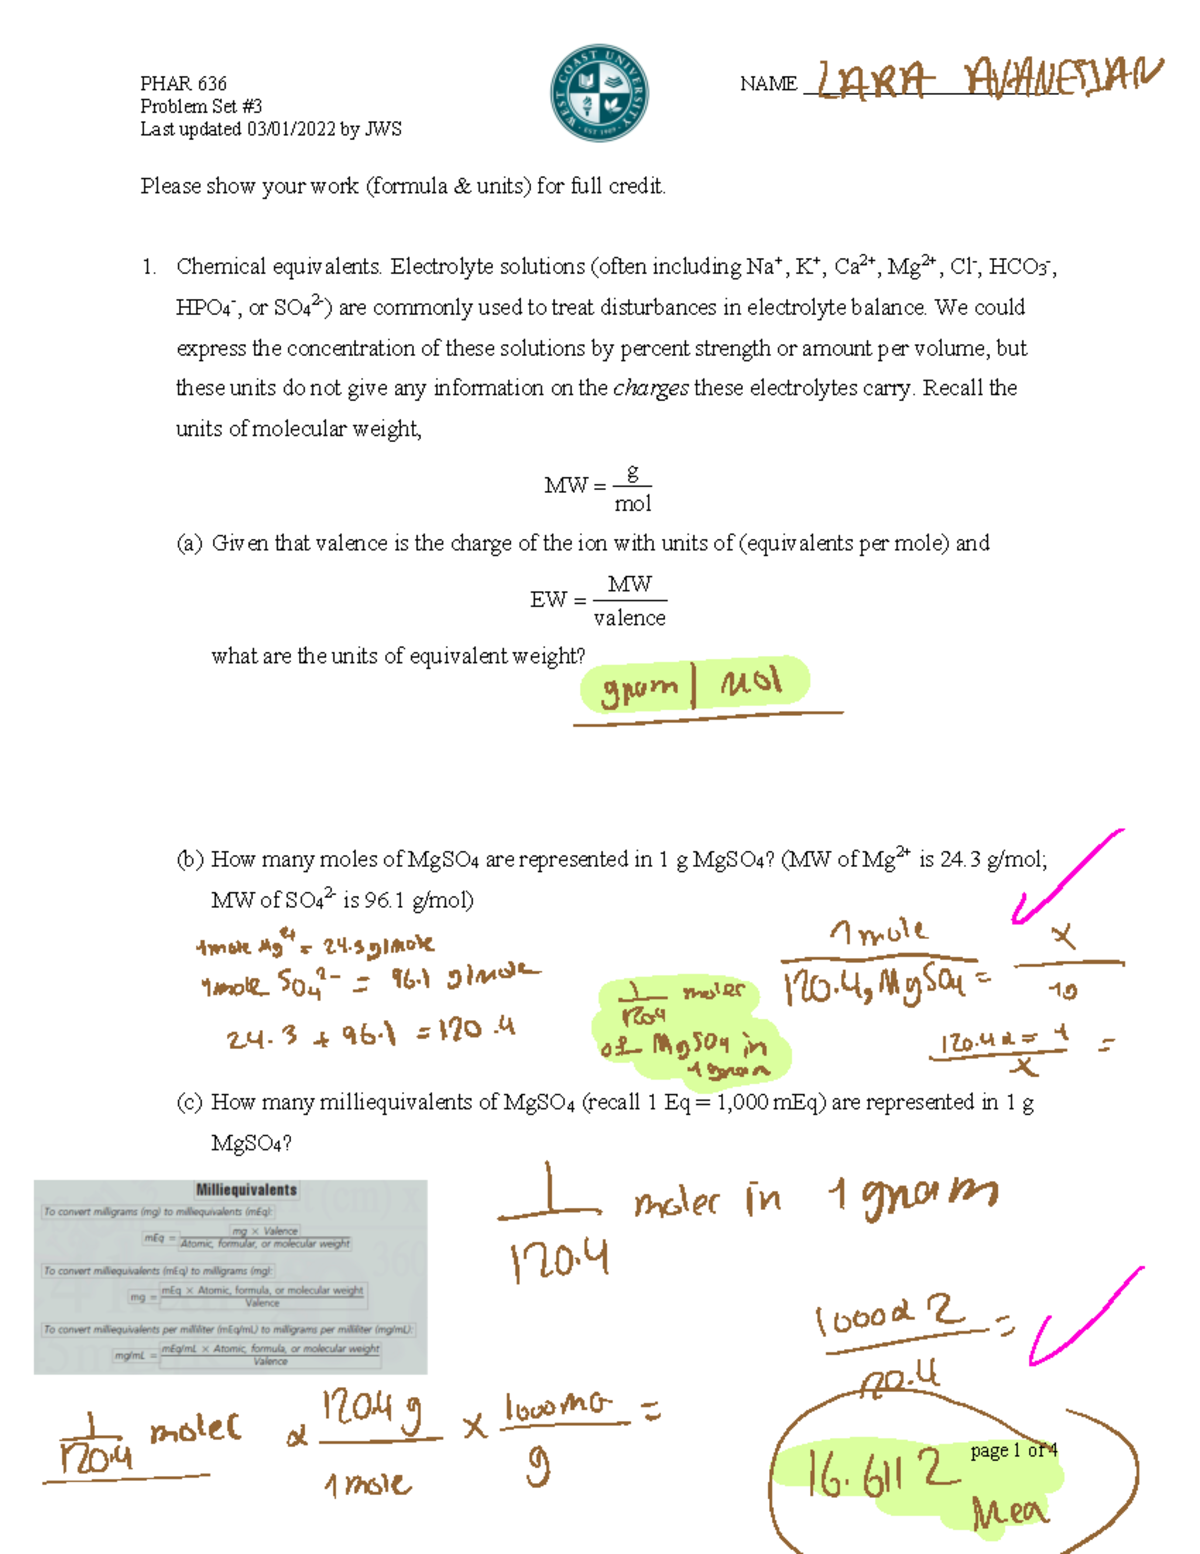 PHAR 636
Problem Set #3
Last updated 03/01/2022 by JWS
WEST COAST UNIVERSITY
EST 1909
NAME LARA AVANESIAN
Please show your work (formula & units) for full credit.
1. Chemical equivalents. Electrolyte solutions (often including Na⁺, K⁺, Ca²⁺, Mg²⁺, Cl⁻, HCO₃⁻,
HPO₄⁻, or SO₄²⁻) are commonly used to treat disturbances in electrolyte balance. We could
express the concentration of these solutions by percent strength or amount per volume, but
these units do not give any information on the charges these electrolytes carry. Recall the
units of molecular weight,
MW = g
mol
(a) Given that valence is the charge of the ion with units of (equivalents per mole) and
EW = MW
valence
what are the units of equivalent weight?
gram | mol
(b) How many moles of MgSO₄ are represented in 1 g MgSO₄? (MW of Mg²⁺ is 24.3 g/mol;
MW of SO₄²⁻ is 96.1 g/mol)
1 mole Mg²⁺ = 24.3 g/mole
1 mole SO₄²⁻ = 96.1 g/mole
24.3 + 96.1 = 120.4
1 moles
of MgSO4 in
1 gram
1 mole
120.4g MgSO4 = x
1g
120.4 x = 1 =
x
(c) How many milliequivalents of MgSO₄ (recall 1 Eq = 1,000 mEq) are represented in 1 g
MgSO₄?
Milliequivalents
To convert milligrams (mg) to milliequivalents (mEq):
mEq = mg × Valence
Atomic, formular, or molecular weight
To convert milliequivalents (mEq) to milligrams (mg):
mg = mEq × Atomic, formula, or molecular weight
Valence
To convert milliequivalents per milliliter (mEq/mL) to milligrams per milliliter (mg/mL):
mg/mL = mEq/mL × Atomic, formula, or molecular weight
Valence
1 moles in 1 gram
120.4
1000 x 2 =
120.4
1 moles x 120.4 g x 1000 mg =
120.4 1 mole g
page 1 of 4
16.6112
Meq